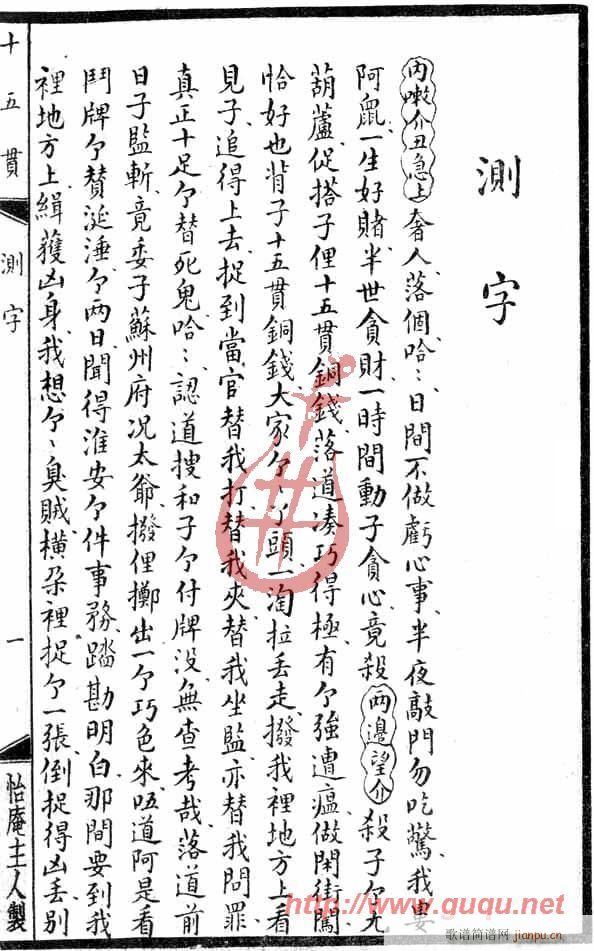 測字
內嗽介丑急上奢人落個哈〻日間不做虧心事半夜敲門勿吃驚我婁
阿鼠一生好賭半世貪財一時間動子貪心竟殺兩邊望介殺子𠆩尤
葫蘆促搭子俚十五貫銅錢落道湊巧得極有𠆩強遭瘟做閑街闖
恰好也背子十五貫銅錢大家𠆩〻丫頭一淘拉丟走撥我裡地方上看
見子追得上去捉到當官替我打替我夾替我坐監亦替我問罪
真正十足𠆩替死鬼哈〻認道搜和子𠆩付牌没無查考哉落道前
日子監斬竟委子蘇州府况太爺撥俚擲出一𠆩巧色來唔道阿是看
鬥牌𠆩贊涎唾𠆩两日聞得淮安𠆩件事務踏勘明白那間要到我
裡地方上緝獲凶身我想𠆩〻臭賊橫朶裡捉𠆩一張倒捉得凶丟別
十五貫
測字
一
怡庵主人製
www.ququ.net
歌谱简谱网
jianpu.cn